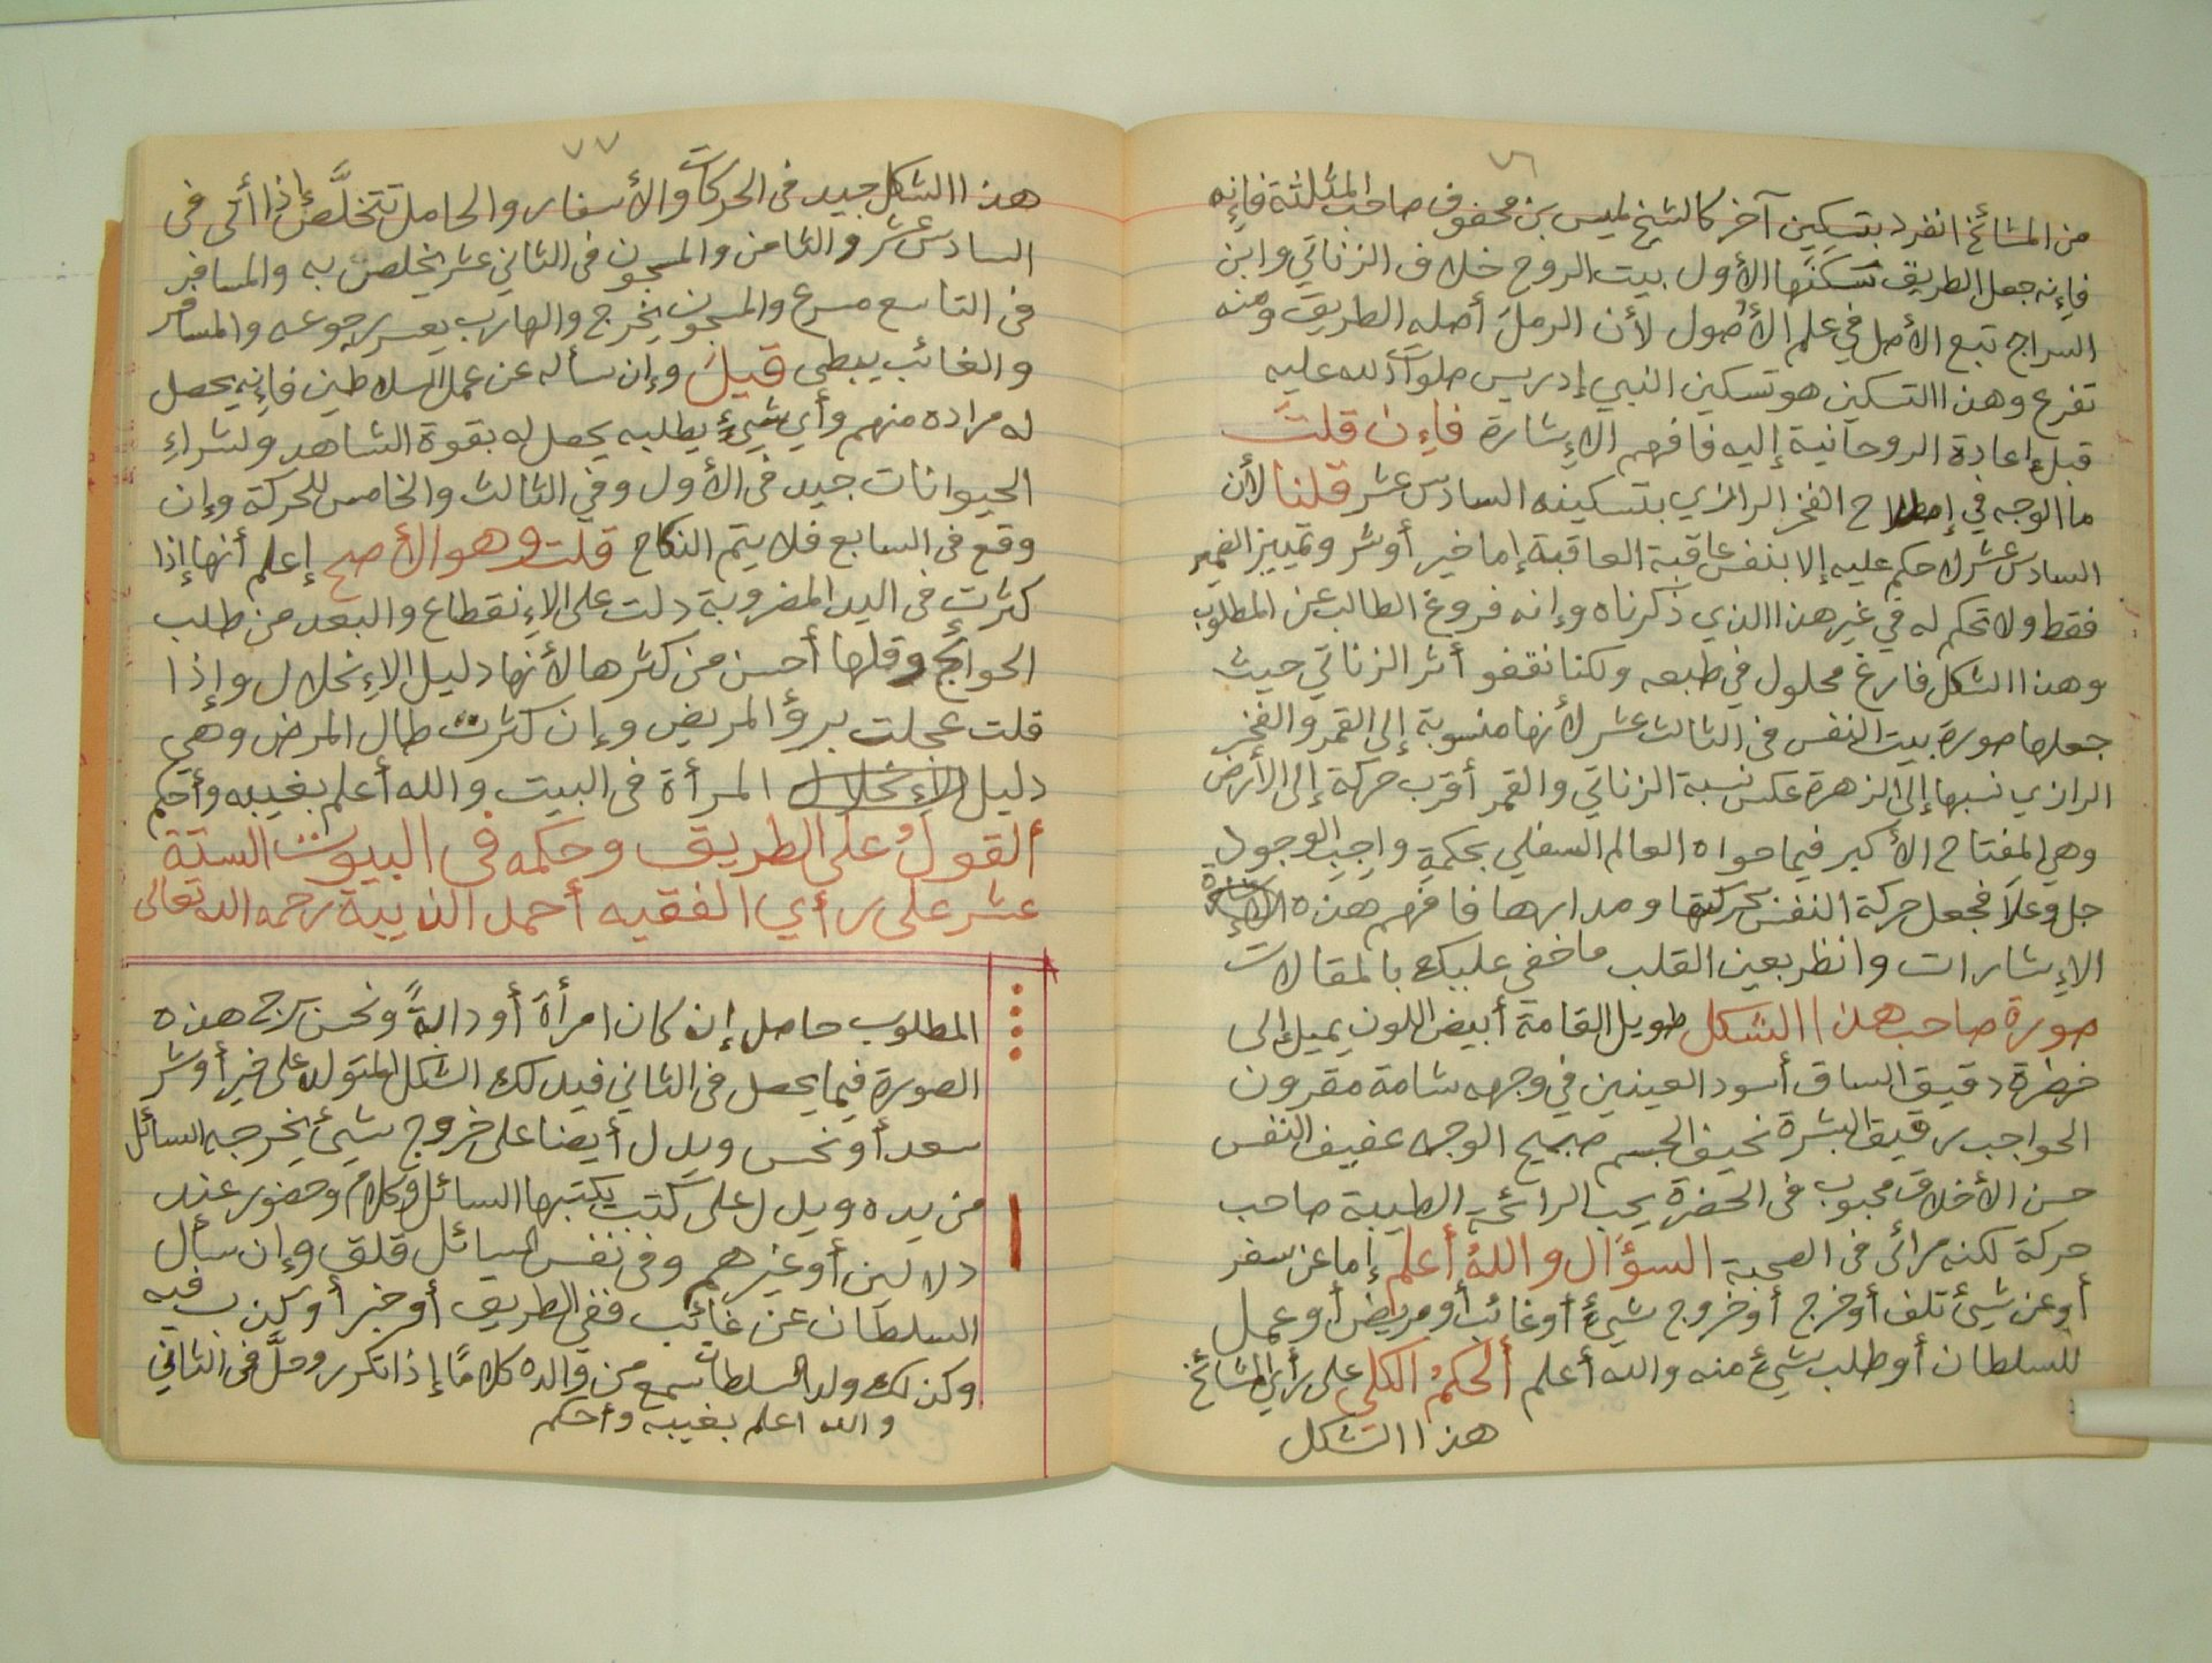 ٧٦
من المشائخ انفرد بتسكين آخر كالشيخ لميس بن محفوف صاحب المثلثة فإنه
فإنه جعل الطريق تسكنها الأول بيت الروح خلاف الزناتي وابن
السراج تبع الأصل في علم الأصول لأن الرمل أصله الطريق ومنه
تفرع وهذا التسكين هو تسكين النبي إدريس صلوات الله عليه
قبل إعادة الروحانية إليه فافهم الإشارة فإن قلت
ما الوجه في إصطلاح الفخر الرازي بتسكينه السادس عشر قلنا لأن
السادس عشر لا حكم عليه إلا بنفس عاقبة العاقبة إما خير أو شر وتمييز الضمير
فقط ولا تحكم له في غير هذا الذي ذكرناه وإنه فروغ الطالب عن المطلوب
وهذا الشكل فارغ محلول في طبعه ولكنا نقفو أثر الزناتي حيث
جعلها صورة بيت النفس فى الثالث عشر لأنها منسوبة إلى القمر والفخر
الرازي نسبها إلى الزهرة عكس نسبة الزناتي والقمر أقرب حركة إلى الأرض
وهي المفتاح الأكبر فيما حواه العالم السفلي بحكمة واجب الوجود
جل وعلا فجعل حركة النفس بحركتها ومدارها فافهم هذه
الإشارات وانظر بعين القلب ما خفي عليك بالمقالات
صورة صاحب هذا الشكل طويل القامة أبيض اللون يميل إلى
خضرة دقيق الساق أسود العينين في وجهه شامة مقرون
الحواجب رقيق البشرة نحيف الجسم صبيح الوجه عفيف النفس
حسن الأخلاق محبوب فى الحضرة يحب الرائحة الطيبة صاحب
حركة لكنه مرائى فى الصحبة السؤال والله أعلم إما عن سفر
أو عن شيئ تلف أو خرج أو خروج شيئ أو غائب أو مريض أو عمل
للسلطان أو طلب شيئ منه والله أعلم ألحكم الكلي على رأي المشائخ
هذا الشكل
٧٧
هذا الشكل جيد فى الحركات والأسفار والحامل تتخلص إذا أتى فى
السادس عشر والثامن والمسجون فى الثاني عشر يخلص به والمسافر
فى التاسع مسرع والمسجون يخرج والهارب يعسر رجوعه والمسافر
والغائب يبطي قيل وإن سأله عن عمل السلاطين فإنه يحصل
له مراده منهم وأي شيئ يطلبه يحصل له بقوة الشاهد ولشراء
الحيوانات جيد فى الأول وفي الثالث والخامس للحركة وإن
وقع فى السابع فلا يتم النكاح قلت وهو الأصح إعلم أنها إذا
كثرت فى اليد المضروبة دلت على الإنقطاع والبعد من طلب
الحوائج وقلها أحسن من كثرها لأنها دليل الإنحلال وإذا
قلت عجلت برؤ المريض وإن كثرت طال المرض وهي
دليل الإنحلال المرأة فى البيت والله أعلم بغيبه وأحكم
ألقول على الطريق وحكمه فى البيوت الستة
عشر على رأي الفقيه أحمد الذيبية رحمه الله تعالى
المطلوب حاصل إن كان امرأة أو دابة ونحن نرج هذه
الصورة فيما يحصل فى الثاني فيدلك الشكل المتولد على خير أو شر
سعد أو نحس ويدل أيضا على خروج شيئ يخرجه السائل
من يده ويدل على كتب يكتبها السائل وكلام وحضور عند
دلالين أو غيرهم وفى نفس السائل قلق وإن سأل
السلطان عن غائب ففي الطريق أو خبر أو كذب فيه
وكذلك ولد السلطان سمع من والده كلاما إذا تكرر وحل فى الثاني
والله اعلم بغيبه وأحكم